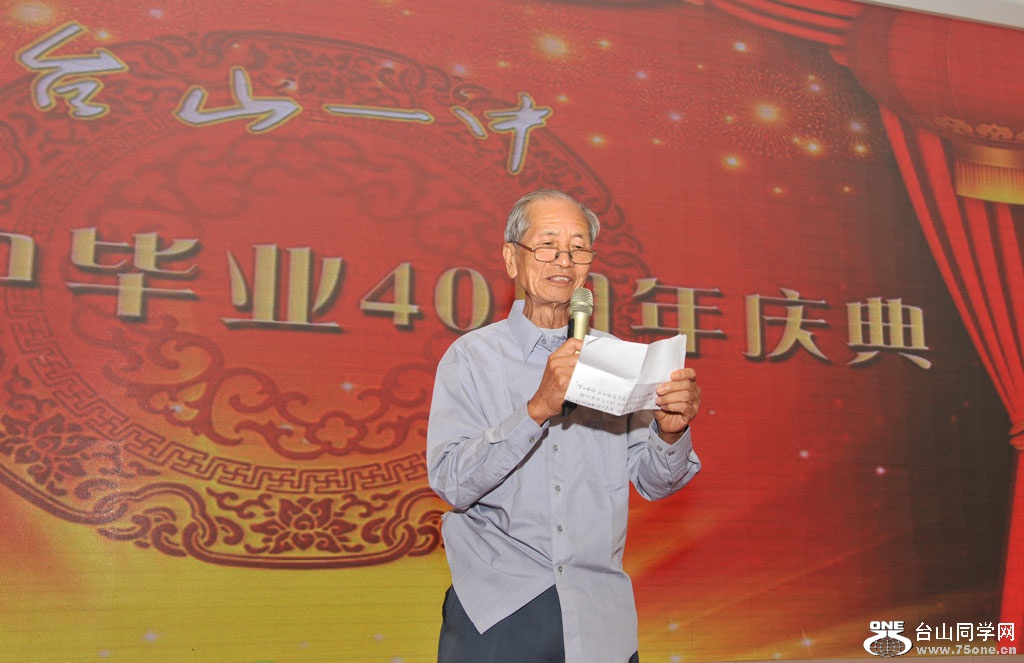 台山一中
中毕业40周年庆典
ONE 台山同学网
www.75one.cn